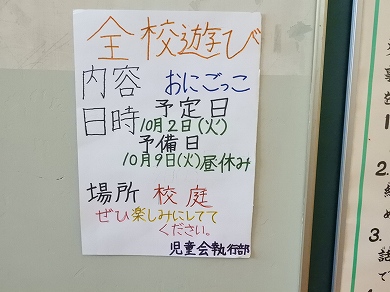 全校遊び
内容 おにごっこ
日時 予定日
10月2日(火)
予備日
10月9日(火)昼休み
場所 校庭
ぜひ楽しみにしてて
ください。
児童会執行部
2.
3.